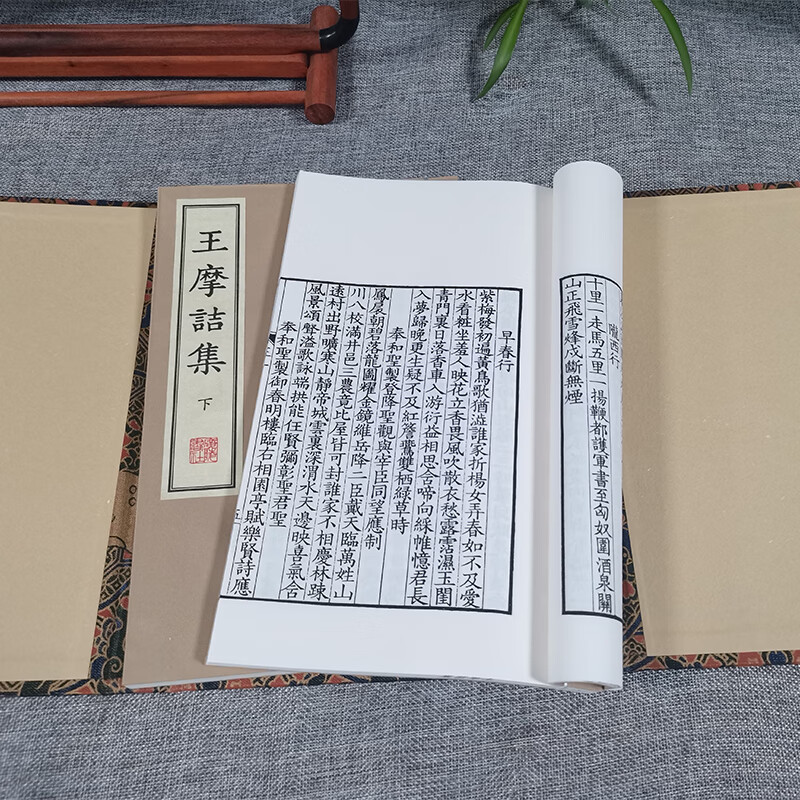 王摩詰集
下
隴西行
十里一走馬五里一揚鞭都護軍書至匈奴圍酒泉關
山正飛雪烽戍斷無煙
早春行
紫梅發初遍黃鳥歌猶澁誰家折楊女弄春如不及愛
水看粧坐羞人映花立香畏風吹散衣愁露霑濕玉閨
青門裏日落香車入游衍益相思含啼向綵帷憶君長
入夢歸晚更生疑不及紅簷鷰雙栖綠草時
奉和聖製登降聖觀與宰臣同望應制
鳳扆朝碧落龍圖耀金鏡維岳降二臣戴天臨萬姓山
川八校滿井邑三農竟比屋皆可封誰家不相慶林疎
遠村出野曠寒山靜帝城雲裏深渭水天邊映喜氣含
風景頌聲溢歌詠端拱能任賢彌彰聖君聖
奉和聖製御春明樓臨右相園亭賦樂賢詩應
五